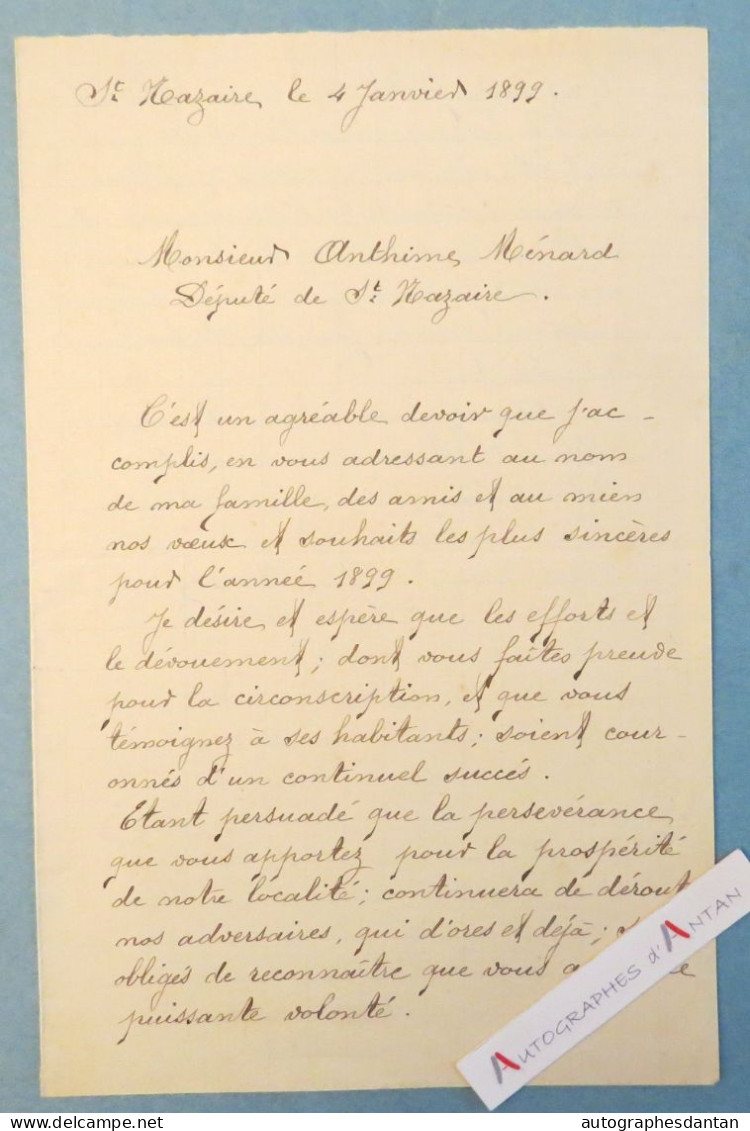 St. Nazaire, le 4 Janvier 1899.
Monsieur Anthime Ménard
Député de St. Nazaire.
C'est un agréable devoir que j'ac-
complis, en vous adressant au nom
de ma famille, des amis et au mien
nos vœux et souhaits les plus sincères
pour l'année 1899.
Je désire et espère que les efforts et
le dévouement; dont vous faîtes preuve
pour la circonscription, et que vous
témoignez à ses habitants; soient cour-
onnés d'un continuel succés.
Etant persuadé que la persevérance
que vous apportez pour la prospérité
de notre localité; continuera de dérout
nos adversaires, qui d'ores et déjà;
obligés de reconnaître que vous
puissante volonté.
AUTOGRAPHES d'ANTAN
delcampe.net
autographesdantan